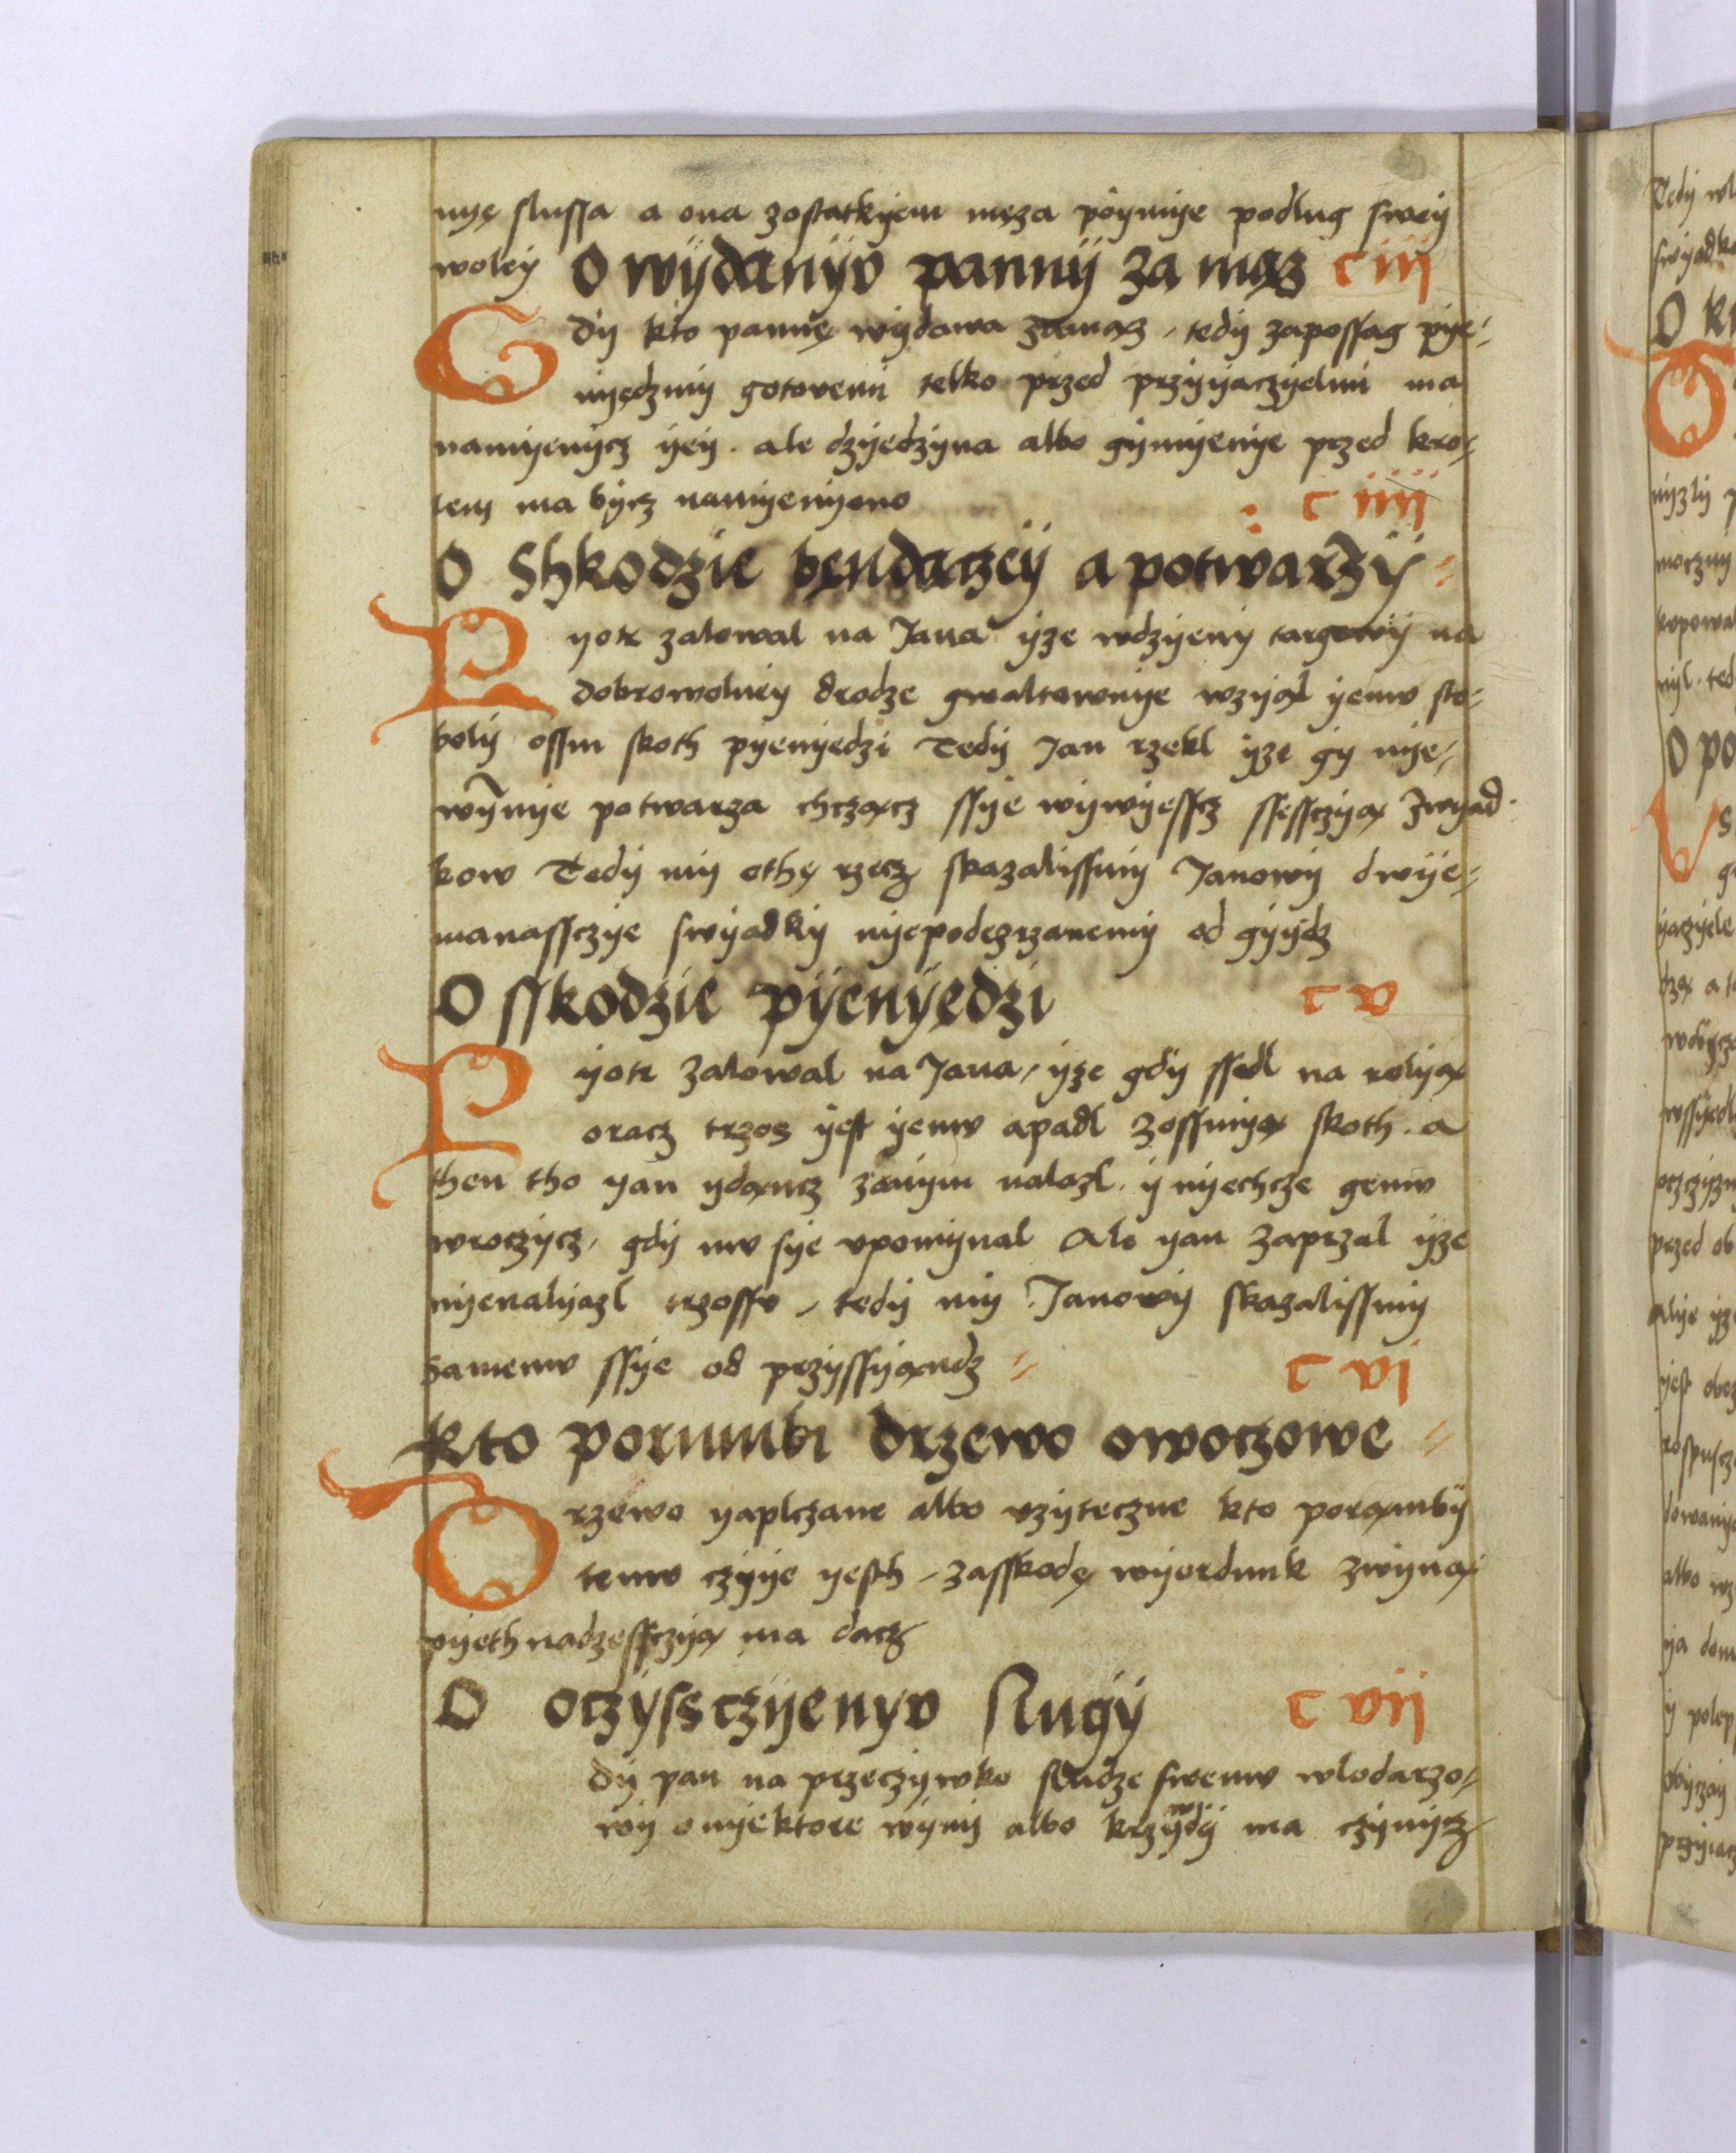 nyę slussa a ona zostatkyem męza poymye podlug swey
woley O wydanyv panny za mąz c iii
Gdy kto pannę wydawa zamąz, tedy zapossag pye-
nyędzmy gotovemi telko przed przyyaczyelmi ma
namyenycz yey. ale dzyedzyna albo gymyenye przed kro-
lem ma bycz namyenyono c iiii
O Shkodzie bendaczey a potwarzy
Pyotr zalowal na Jana yze wdzyeny targowy na
dobrowolney drodze gwaltownye wzyął yemv sto-
boly ossm skoth pyenyedzi Tedy Jan rzekl yze gy nye-
wynnye potwarza chcząącz ssye wywyesscz ssessczyą zwyad
kow Tedy my othę rzecz skazalissmy Janowy dwye-
manassczye swyadky nyepodezrzanemy od gyydz
O sskodzie pyenyędzi c v
Pyotr zalowal na Jana, yze gdy ssedl na rolyą
oracz trzos yest yemv apadl zossmyą skoth. a
then tho yan ydąncz zanym nalazl. y nyechcze gemv
wroczycz, gdy mv sye vpomynal Ale yan zaprzal yze
nyenalyazl trzossv, tedy my Janowy skazalissmy
samemv ssye od przyssyąndz c vi
kto porumbi drzewo owoczowe
Drzewo yaplczane albo vzyteczne kto porąmby
temv czyye yesth, zasskodę wyordunk zwyną
pyeth nadzessczyą ma dacz
O oczyssczyenyv slugy c vii
dy pan na przeczywko sludze swemv wlodarzo-
wy o nyektore wyny albo krzywdy ma czynycz